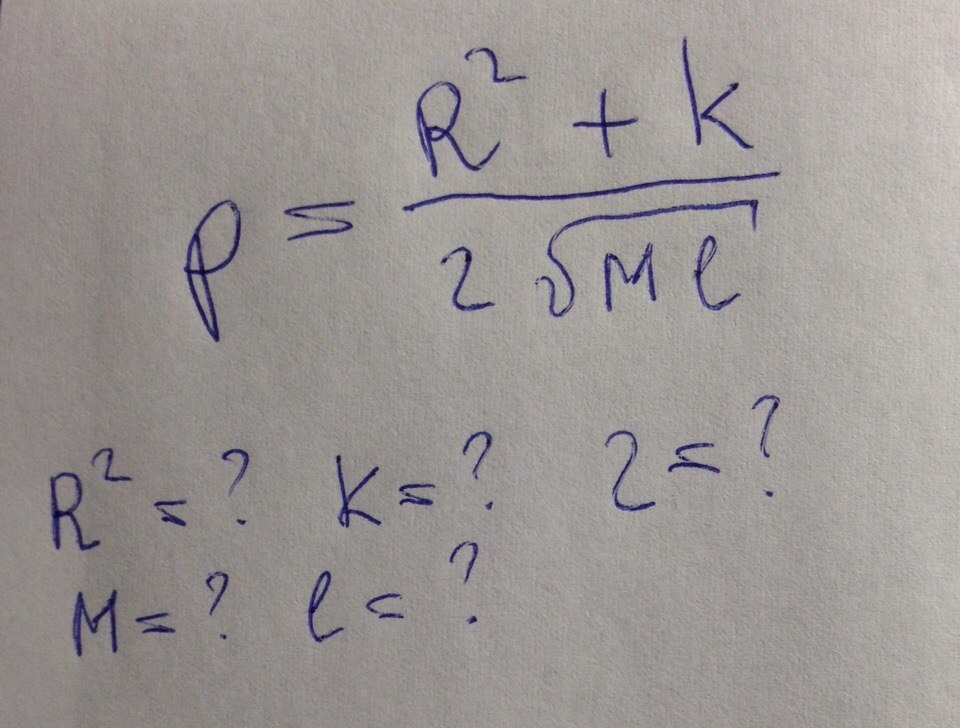 p = (R² + k) / (2 √(M l))
R² = ? k = ? 2 = ?
M = ? l = ?